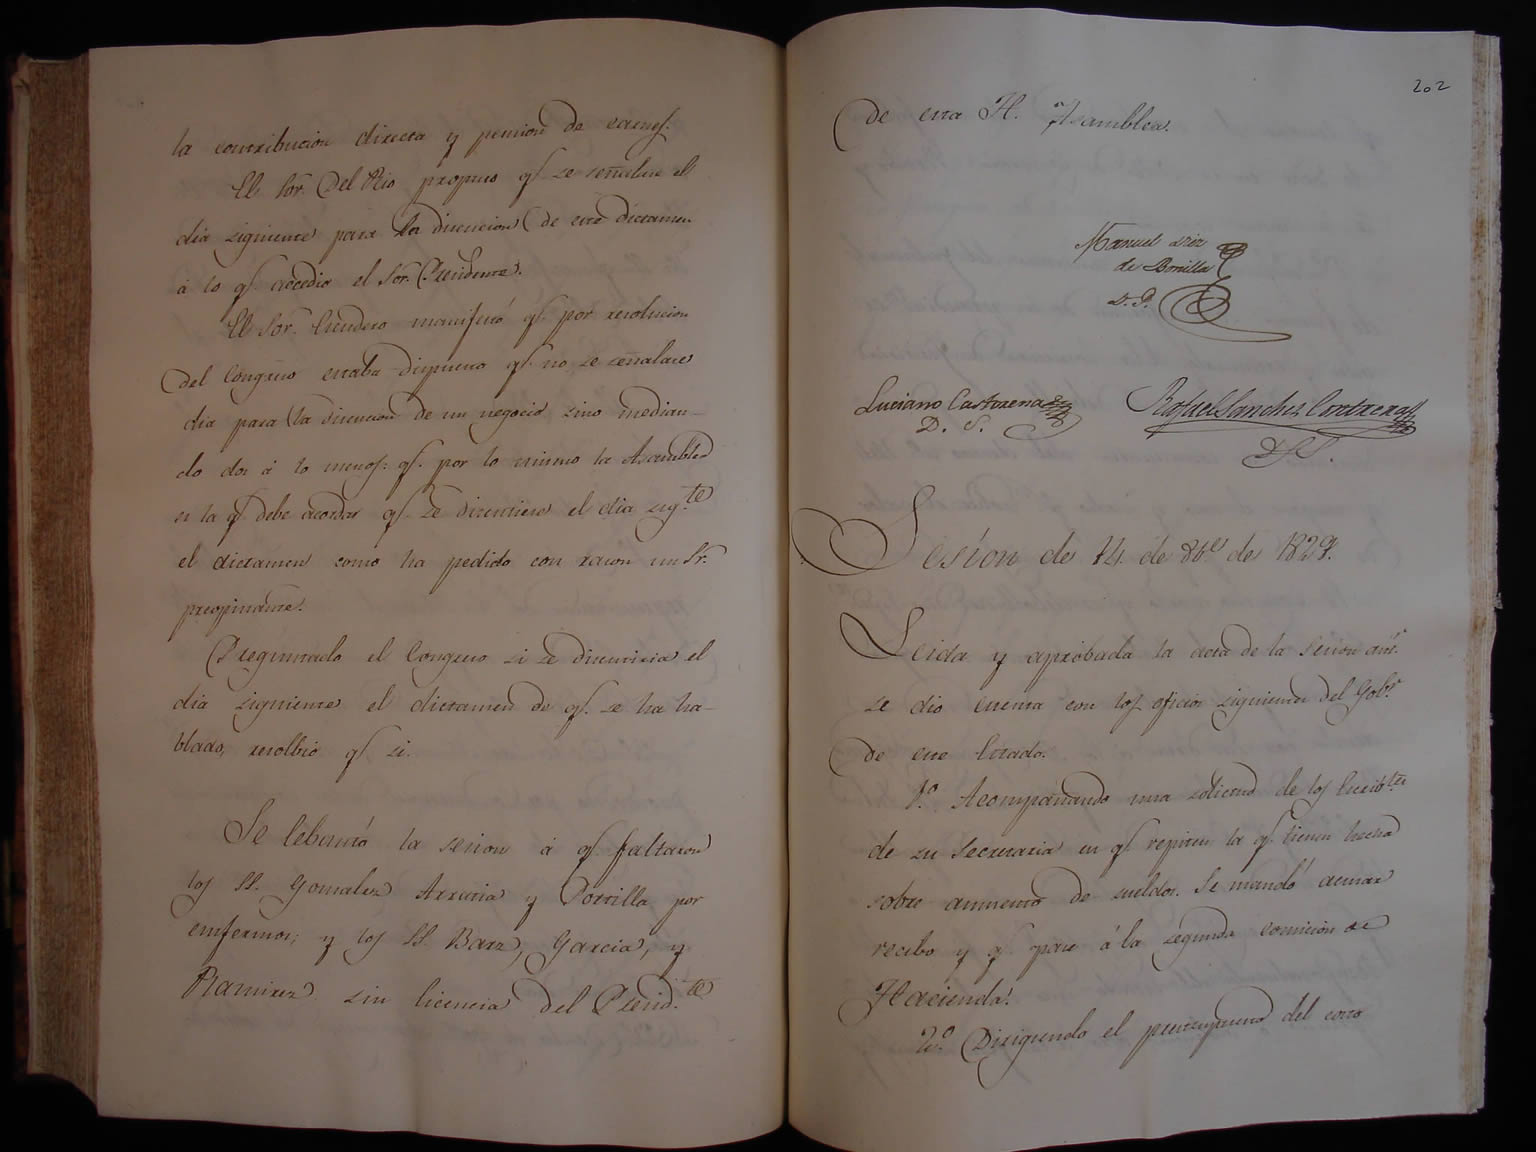 la contribucion directa y pension de carnes.
El Sor. Del Rio propuso qe. se señalase el
dia siguiente para la discucion de este dictamen
á lo qe. accedio el Sor. Presidente.
El Sor. Escudero manifestó qe. por resolucion
del Congreso estaba dispuesto qe. no se señalase
dia para la discucion de un negocio sino median-
do dos á lo menos: qe. por lo mismo la Asamblea
es la qe. debe acordar qe. se discutiese el dia sigte
el dictamen como ha pedido con razon un Sr.
preopinante.
Preguntado el Congreso si se discutiria el
dia siguiente el dictamen de qe. se ha ha-
blado, resolbio qe. si.
Se lebantó la sesion á qe. faltaron
los SS. Gonzalez Arratia y Portilla por
enfermos; y los SS. Barz, Garcia, y
Ramirez sin licencia del Presid.te
202
de esta H. Asamblea.
Manuel Diez
de Bonilla
D. P.
Luciano Castorena
D. S.
Rafael Sanchez Contreras
D. S.
Sesion de 14. de 8be. de 1829.
Leida y aprobada la acta de la sesion antr.
se dio cuenta con los oficios siguientes del Gobr.
de este Estado.
1.o Acompañando una solicitud de los Escribtes
de su Secretaria en qe. repiten la qe. tienen hecha
sobre aumento de sueldos. Se mandó acusar
recibo y qe. pase á la segunda comision de
Hacienda.
2.o Dirigiendo el presupuesto del corro